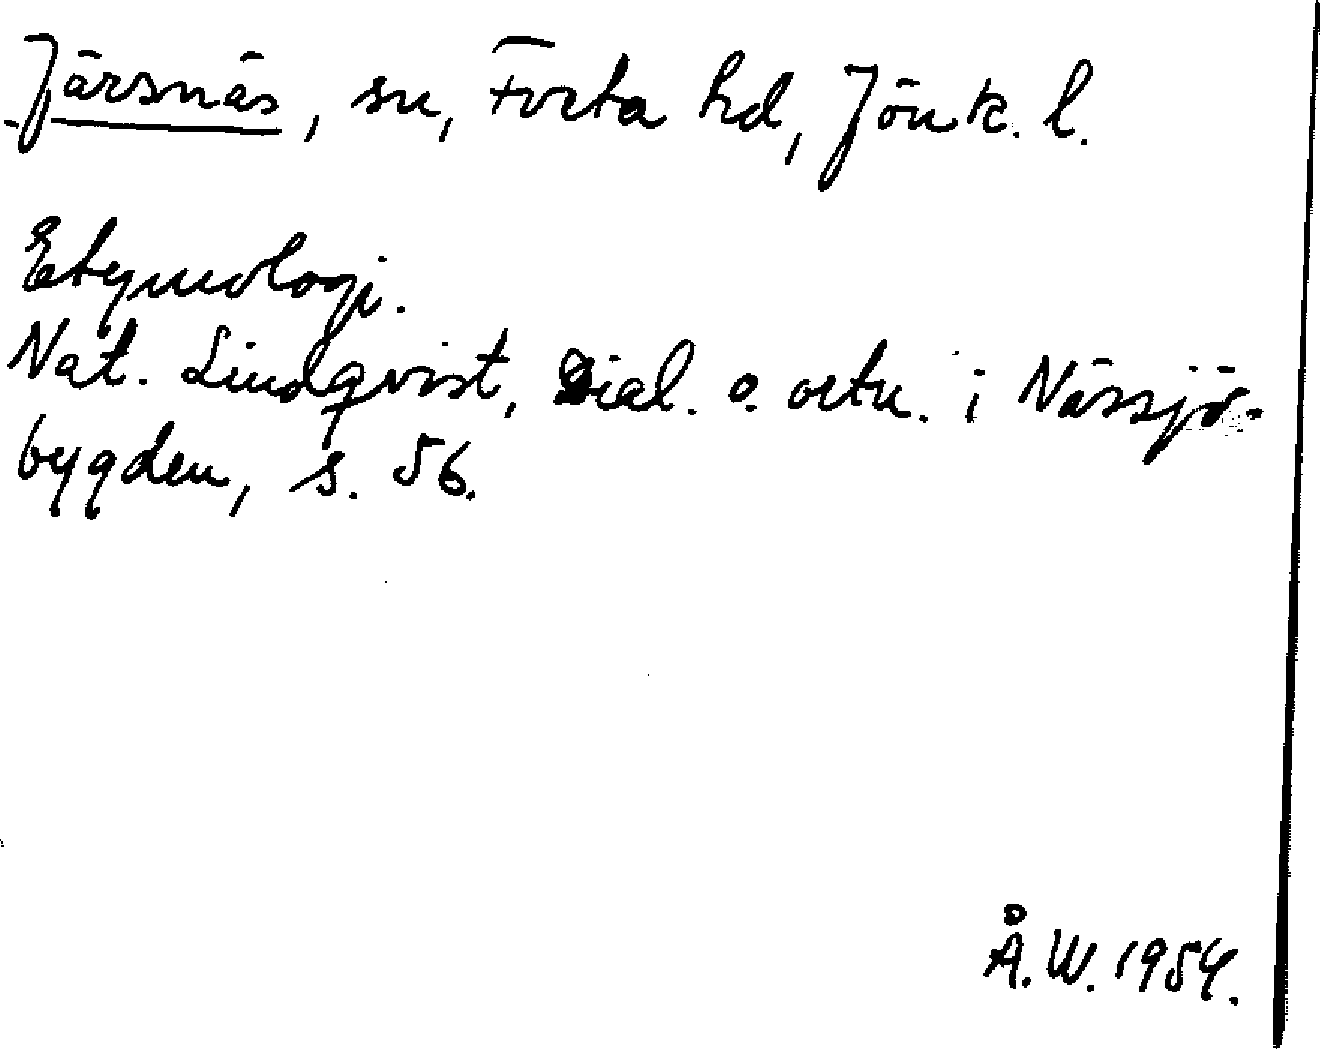 Järsnäs, sn, Tveta hd, Jönk. l.
Etymologi.
Nat. Lindqvist, Dial. o. ortn. i Nässjö-
bygden, s. 56.
Å.W. 1954.